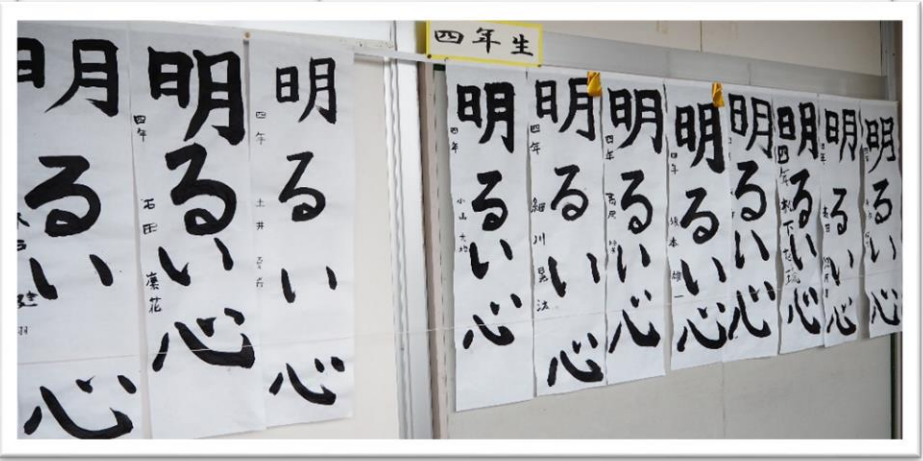 四年生
明るい心
明るい心
四年 石田 凜花
明るい心
四年 土井
明るい心
四年 小山
明るい心
四年 細川 晃汰
明るい心
四年
明るい心
四年 坂本 雄一
明るい心
明るい心
四年 松下
明るい心
明るい心